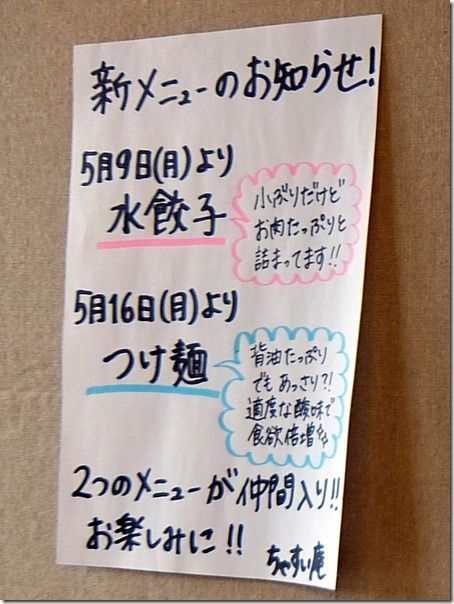 新メニューのお知らせ!
5月9日(月)より
水餃子
小ぶりだけど
お肉たっぷりと
詰まってます!!
5月16日(月)より
つけ麺
背油たっぷり
でもあっさり?!
適度な酸味で
食欲倍増
2つのメニューが仲間入り!!
お楽しみに!!
ちゃすい庵